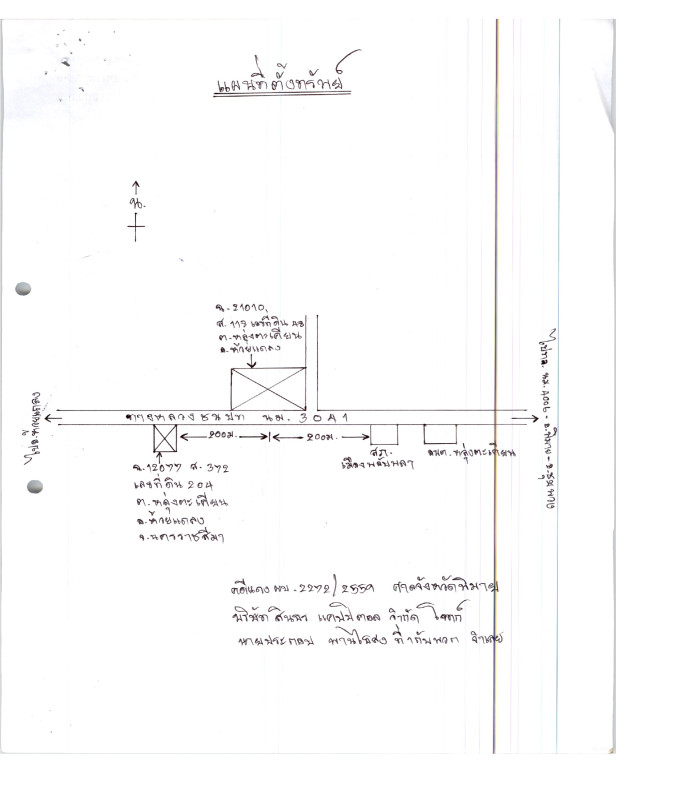 แผนที่ตั้งทรัพย์
น.
ฉ.21010,
ส.115 เลขที่ดิน 48
ต.หลุ่งตะเคียน
อ.ห้วยแถลง
ทางหลวงชนบท นม. 3041
200ม.
200ม.
ฉ.12077 ส. 372
เลขที่ดิน 204
ต.หลุ่งตะเคียน
อ.ห้วยแถลง
จ.นครราชสีมา
สภ.
เมืองพลับพลา
อบต.หลุ่งตะเคียน
ไปทล. นม.4006 - อ.พิมาย - อ.ชุมพวง
คดีแดง ผบ.2272/2559 ศาลจังหวัดพิมาย
บริษัท สินทร แคปปิตอล จำกัด โจทก์
นายประกอบ ที่ 1 กับพวก จำเลย